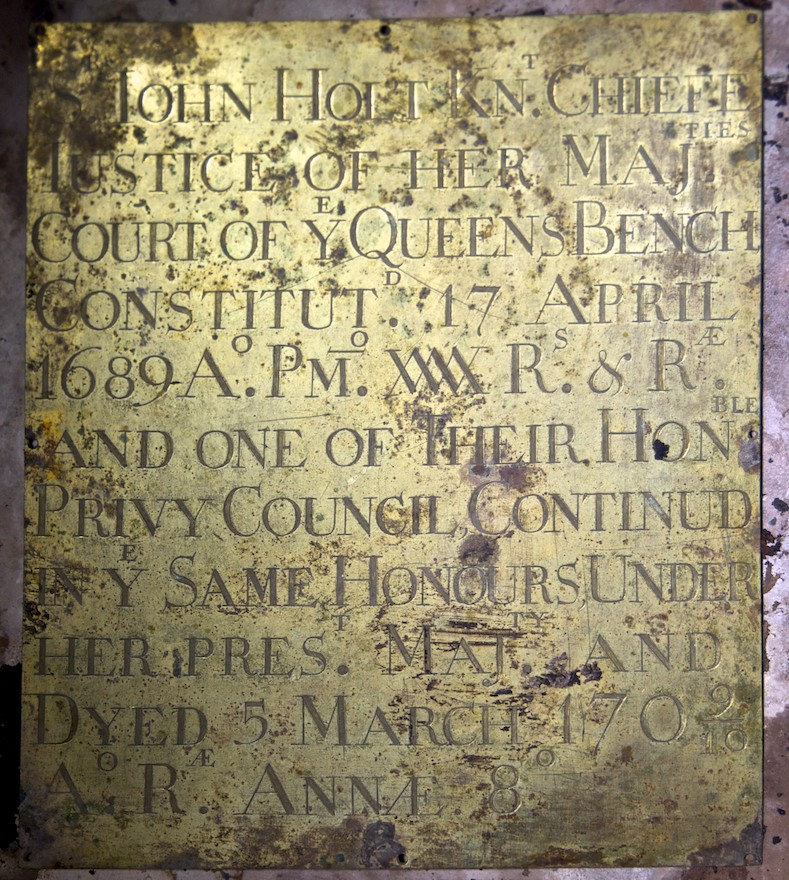 IOHN HOLT KN^T. CHIEFE
IUSTICE OF HER MAJ^TIES.
COURT OF Y^E QUEENS BENCH
CONSTITUT^D. 17 APRIL
1689 A^O. P^M. WWX R^S. & R^Æ.
AND ONE OF THEIR HON^BLE
PRIVY COUNCIL CONTINUD
IN Y^E SAME HONOURS, UNDER
HER PRES^T. MAJ^TY AND
DYED 5 MARCH 170 9/10
A^O. R^Æ. ANNÆ 8^O